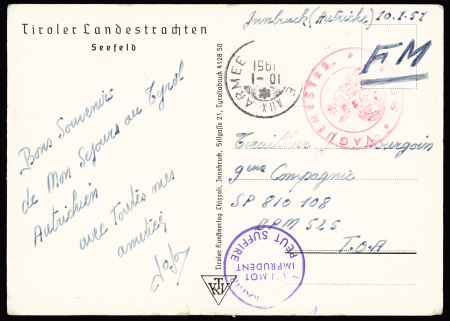 Tiroler Landestrachten
Seefeld
Innsbruck (Autriche) 10.1.51
FM
POSTE AUX ARMEES
10-1
1951
VAGUEMESTRE
Bons Souvenirs
de Mon Sejours au Tyrol
Autrichien
avec toutes mes
amitiés
JoJo
Tiroler Kunstverlag Chizzali, Innsbruck, Sillgasse 21, Tyroliadruck 4128 50
Tirailleur Bourgoin
9eme Compagnie
SP 810 108
BPM 525
T.O.A
UN MOT
IMPRUDENT
PEUT SUFFIRE
TKV